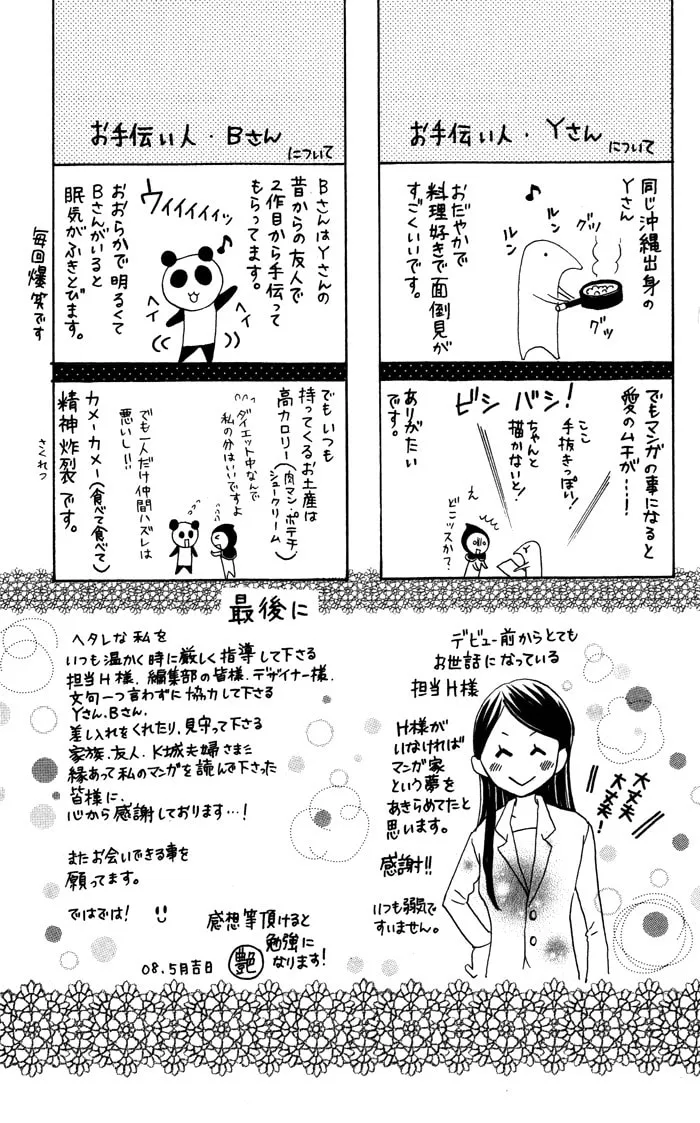 お手伝い人・Yさん
について
同じ沖縄出身の
Yさん
おだやかで
料理好きで面倒見が
すごくいいです。
♪
ルン
ルン
グツ
グツ
でもマンガの事になると
愛のムチが…!
ビシ バシ!
ここ
手抜きっぽい!
ちゃんと
描かないと!
ありがたい
です。
え
どこッスか?
お手伝い人・Bさん
について
BさんはYさんの
昔からの友人で
2作目から手伝って
もらってます。
ウィィィィィッ
♪
ヘイ
ヘイ
おおらかで明るくて
Bさんがいると
眠気がふきとびます。
毎回爆笑です
でもいつも
持ってくるお土産は
高カロリー(肉マン・ポテチ
シュークリーム)
ダイエット中なんで
私の分はいいですよ
でも一人だけ仲間ハズレは
悪いし!!
カメーカメー(食べて食べて)
精神炸裂です。
さくれつ
デビュー前からとても
お世話になっている
担当H様
H様が
いなければ
マンガ家
という夢を
あきらめてたと
思います。
感謝!!
いつも弱気で
すいません。
大丈夫
大丈夫!
最後に
ヘタレな私を
いつも温かく時に厳しく指導して下さる
担当H様、編集部の皆様、デザイナー様、
文句一つ言わずに協力して下さる
Yさん、Bさん、
差し入れをくれたり、見守って下さる
家族、友人、K城夫婦さま
縁あって私のマンガを読んで下さった
皆様に、
心から感謝しております…!
またお会いできる事を
願ってます。
ではでは!
感想等頂けると
勉強に
なります!
08.5月吉日
艶